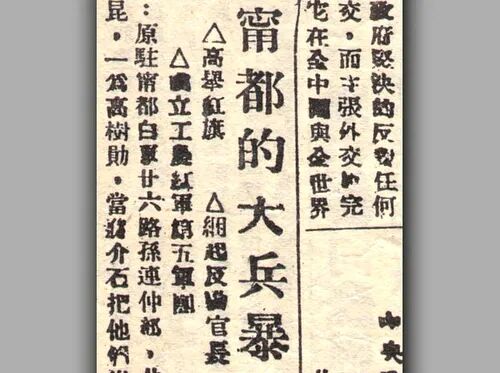 政府堅決的反對任何
交，而主張外交的完
它在全中國與全世界
中央
甯都的大兵暴
△高舉紅旗 △綑起反動官長
△成立工農紅軍第五軍團
：原駐甯都白軍廿六路孫連仲部，共
昆，一爲高樹勛，當蔣介石把他們從